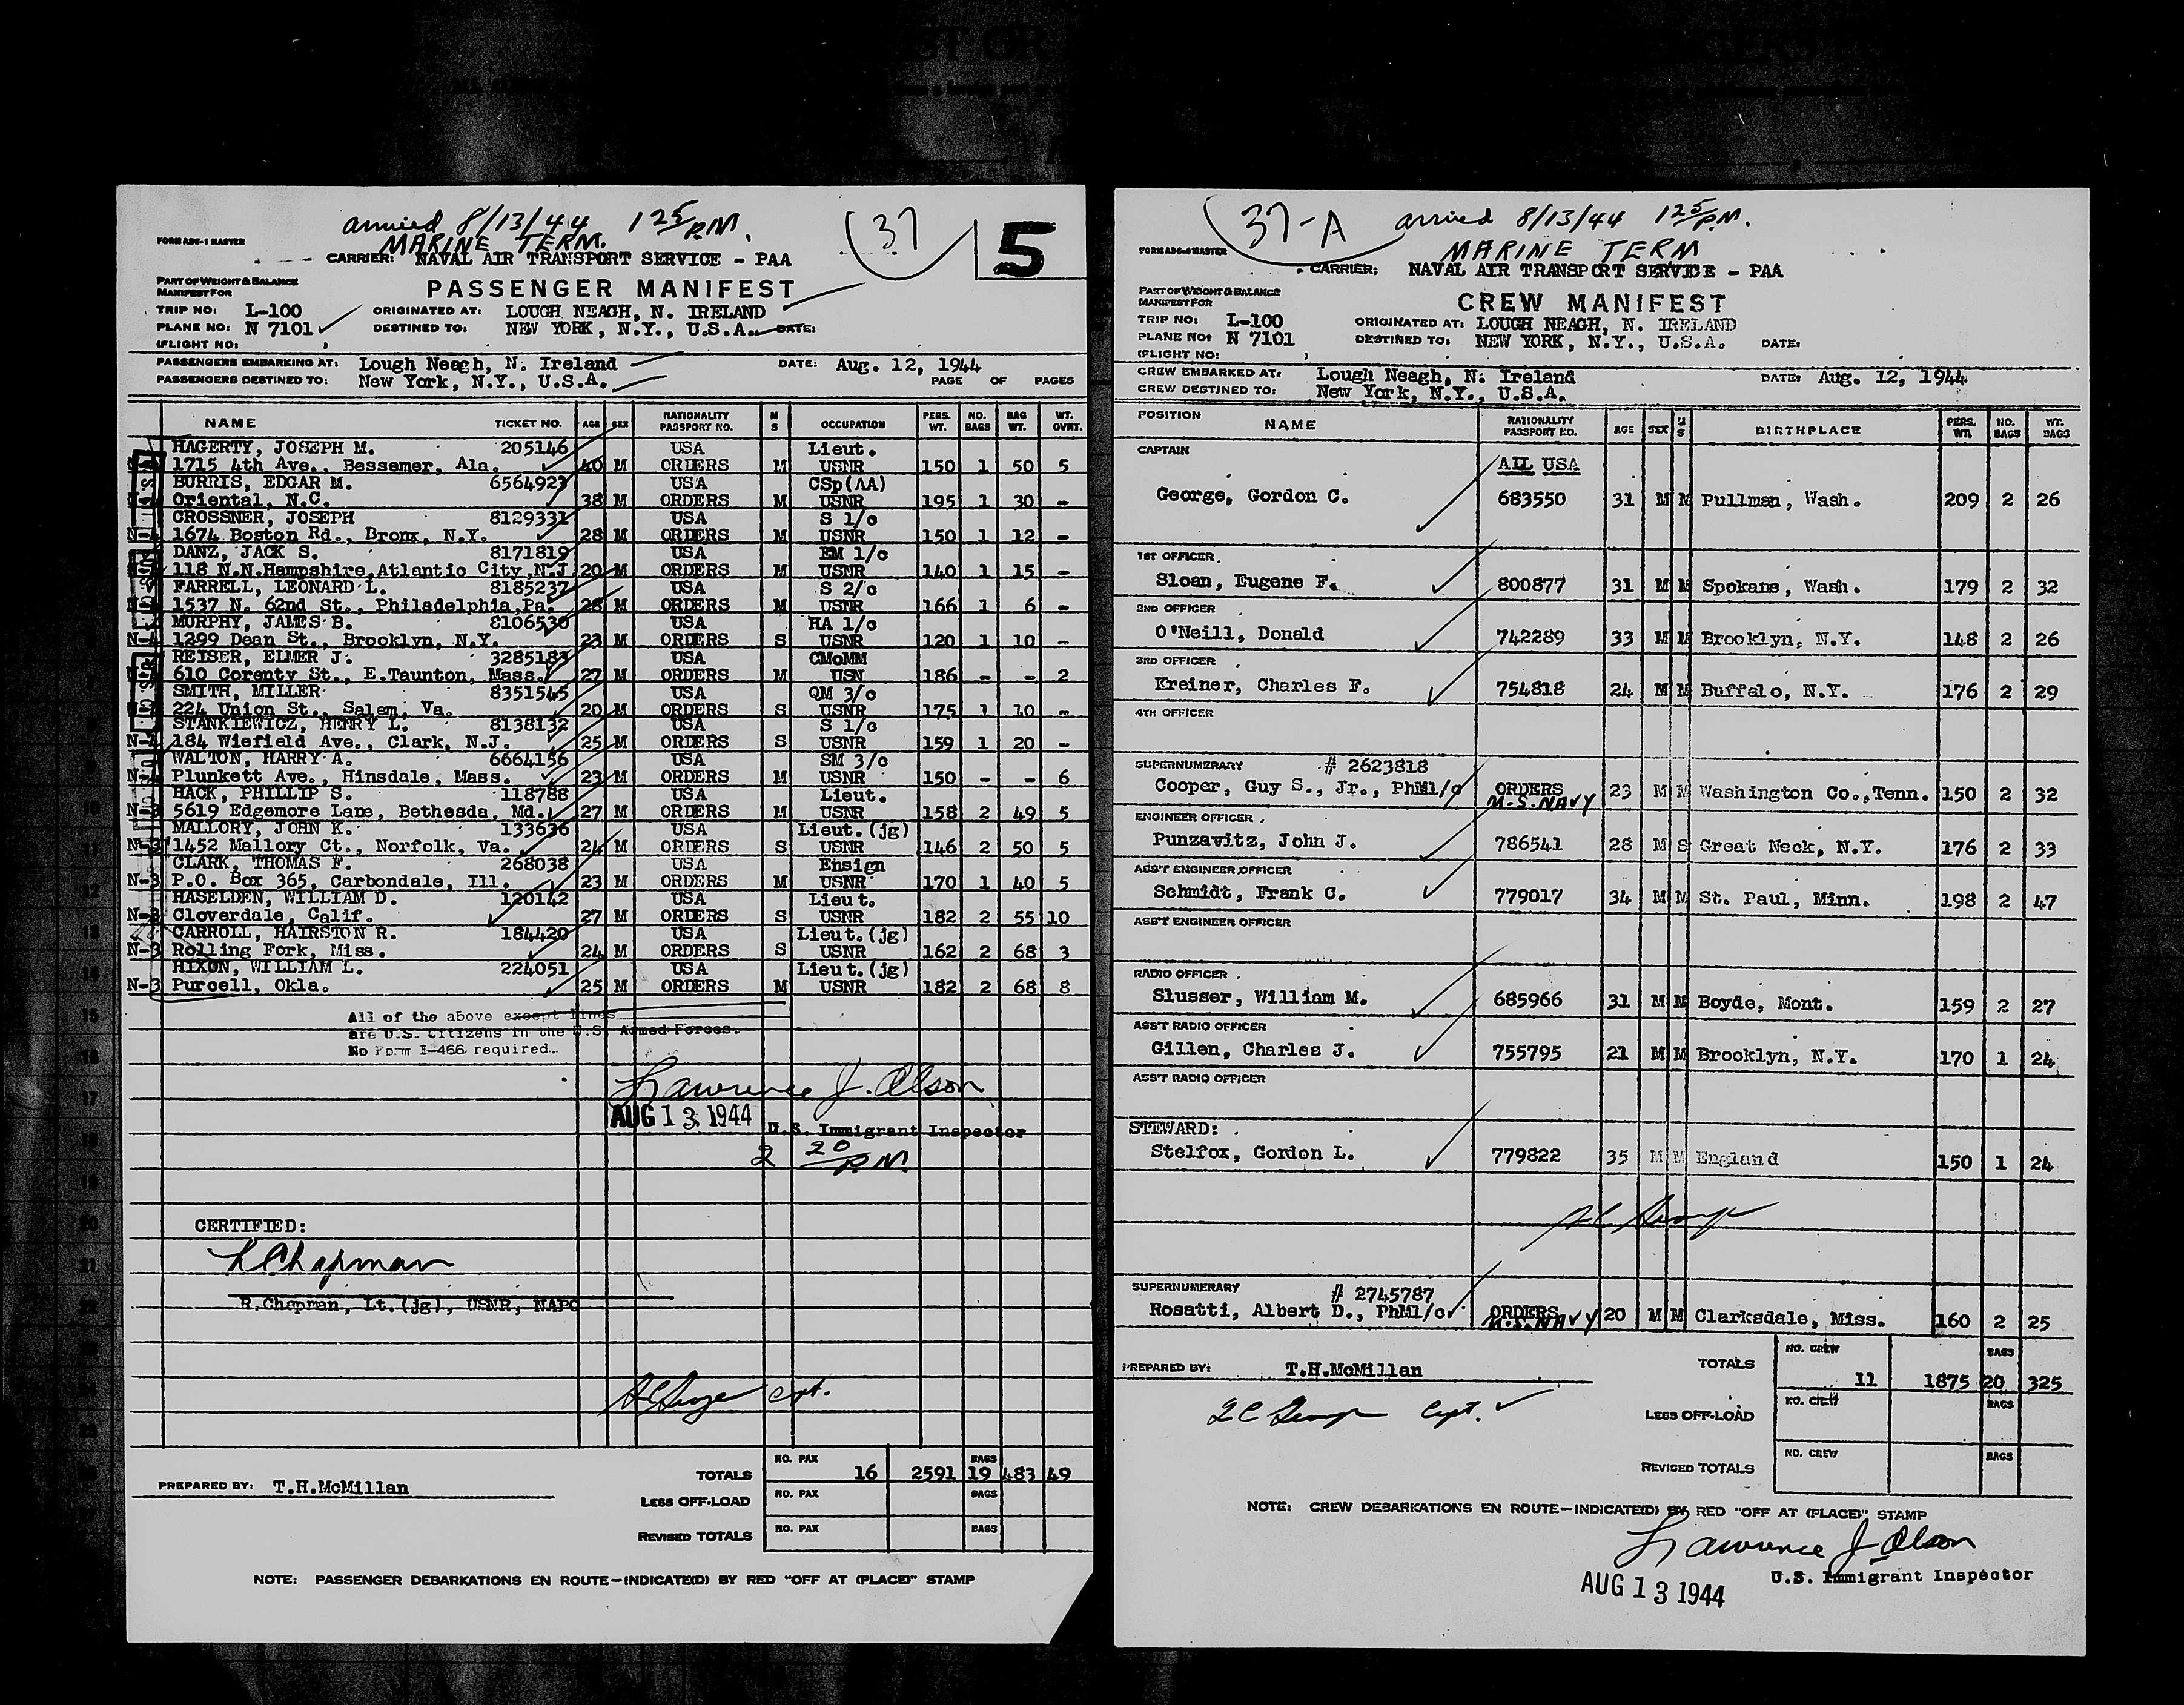 arrived 8/13/44 1 25 P.M.
(37)
5
MARINE TERM.
FORM ABG-1 MASTER
CARRIER: NAVAL AIR TRANSPORT SERVICE - PAA
PART OF WEIGHT & BALANCE
MANIFEST FOR
PASSENGER MANIFEST
TRIP NO: L-100 ORIGINATED AT: LOUGH NEAGH, N. IRELAND
PLANE NO: N 7101 DESTINED TO: NEW YORK, N.Y., U.S.A. DATE:
(FLIGHT NO: )
PASSENGERS EMBARKING AT: Lough Neagh, N. Ireland DATE: Aug. 12, 1944
PASSENGERS DESTINED TO: New York, N.Y., U.S.A. PAGE OF PAGES
NAME TICKET NO. AGE SEX NATIONALITY PASSPORT NO. M S OCCUPATION PERS. WT. NO. BAGS BAG WT. WT. OVRT.
HAGERTY, JOSEPH M. 205146 USA Lieut.
1715 4th Ave., Bessemer, Ala. 40 M ORDERS M USNR 150 1 50 5
BURRIS, EDGAR M. 6564923 USA CSp(AA)
Oriental, N.C. 38 M ORDERS M USNR 195 1 30 -
CROSSNER, JOSEPH 8129331 USA S 1/c
N-4 1674 Boston Rd., Bronx, N.Y. 28 M ORDERS M USNR 150 1 12 -
DANZ, JACK S. 8171819 USA EM 1/c
118 N.N.Hampshire, Atlantic City, N.J. 20 M ORDERS M USNR 140 1 15 -
FARRELL, LEONARD L. 8185237 USA S 2/c
1537 N. 62nd St., Philadelphia, Pa. 28 M ORDERS M USNR 166 1 6 -
MURPHY, JAMES B. 8106530 USA HA 1/c
N-4 1299 Dean St., Brooklyn, N.Y. 23 M ORDERS S USNR 120 1 10 -
REISER, ELMER J. 3285183 USA CMoMM
610 Corenty St., E.Taunton, Mass. 27 M ORDERS M USN 186 - - 2
SMITH, MILLER 8351545 USA QM 3/c
224 Union St., Salem, Va. 20 M ORDERS S USNR 175 1 10 -
STANKIEWICZ, HENRY L. 8138132 USA S 1/c
N-4 184 Wiefield Ave., Clark, N.J. 25 M ORDERS S USNR 159 1 20 -
WALTON, HARRY A. 6664156 USA SM 3/c
N-4 Plunkett Ave., Hinsdale, Mass. 23 M ORDERS M USNR 150 - - 6
HACK, PHILLIP S. 118788 USA Lieut.
N-3 5619 Edgemore Lane, Bethesda, Md. 27 M ORDERS M USNR 158 2 49 5
MALLORY, JOHN K. 133636 USA Lieut.(jg)
N-3 1452 Mallory Ct., Norfolk, Va. 24 M ORDERS S USNR 146 2 50 5
CLARK, THOMAS F. 268038 USA Ensign
N-3 P.O. Box 365, Carbondale, Ill. 23 M ORDERS M USNR 170 1 40 5
HASELDEN, WILLIAM D. 120142 USA Lieut.
N-3 Cloverdale, Calif. 27 M ORDERS S USNR 182 2 55 10
CARROLL, HAIRSTON R. 184420 USA Lieut.(jg)
N-3 Rolling Fork, Miss. 24 M ORDERS S USNR 162 2 68 3
HIXON, WILLIAM L. 224051 USA Lieut.(jg)
N-3 Purcell, Okla. 25 M ORDERS M USNR 182 2 68 8
All of the above except lines
are U.S. Citizens in the U.S. Armed Forces.
No Form I-466 required.
Lawrence J. Olson
AUG 13 1944 U.S. Immigrant Inspector
2 20 P.M.
CERTIFIED:
R Chapman
R. Chapman, Lt.(jg), USNR, NAPO
Capt.
PREPARED BY: T.H.McMillan
TOTALS NO. PAX 16 2591 BAGS 19 483 49
LESS OFF-LOAD NO. PAX BAGS
REVISED TOTALS NO. PAX BAGS
NOTE: PASSENGER DEBARKATIONS EN ROUTE—INDICATE(D) BY RED "OFF AT (PLACE)" STAMP
37-A arrived 8/13/44 1 25 P.M.
MARINE TERM
FORM ABG-4 MASTER
CARRIER: NAVAL AIR TRANSPORT SERVICE - PAA
PART OF WEIGHT & BALANCE
MANIFEST FOR
CREW MANIFEST
TRIP NO: L-100 ORIGINATED AT: LOUGH NEAGH, N. IRELAND
PLANE NO: N 7101 DESTINED TO: NEW YORK, N.Y., U.S.A. DATE:
(FLIGHT NO: )
CREW EMBARKED AT: Lough Neagh, N. Ireland DATE: Aug. 12, 1944
CREW DESTINED TO: New York, N.Y., U.S.A.
POSITION NAME NATIONALITY PASSPORT NO. AGE SEX M S BIRTHPLACE PERS. WT. NO. BAGS WT. BAGS
CAPTAIN
ALL USA
George, Gordon C. 683550 31 M M Pullman, Wash. 209 2 26
1ST OFFICER
Sloan, Eugene F. 800877 31 M M Spokane, Wash. 179 2 32
2ND OFFICER
O'Neill, Donald 742289 33 M M Brooklyn, N.Y. 148 2 26
3RD OFFICER
Kreiner, Charles F. 754818 24 M M Buffalo, N.Y. 176 2 29
4TH OFFICER
SUPERNUMERARY # 2623818
Cooper, Guy S., Jr., PhM1/c ORDERS 23 M M Washington Co., Tenn. 150 2 32
U.S. NAVY
ENGINEER OFFICER
Punzavitz, John J. 786541 28 M S Great Neck, N.Y. 176 2 33
ASS'T ENGINEER OFFICER
Schmidt, Frank C. 779017 34 M M St. Paul, Minn. 198 2 47
ASS'T ENGINEER OFFICER
RADIO OFFICER
Slusser, William M. 685966 31 M M Boyde, Mont. 159 2 27
ASS'T RADIO OFFICER
Gillen, Charles J. 755795 21 M M Brooklyn, N.Y. 170 1 24
ASS'T RADIO OFFICER
STEWARD:
Stelfox, Gordon L. 779822 35 M M England 150 1 24
SUPERNUMERARY # 2745787
Rosatti, Albert D., PhM1/c ORDERS 20 M M Clarksdale, Miss. 160 2 25
U.S. NAVY
PREPARED BY: T.H.McMillan
TOTALS NO. CREW 11 1875 BAGS 20 325
Capt.
LESS OFF-LOAD NO. CREW BAGS
REVISED TOTALS NO. CREW BAGS
NOTE: CREW DEBARKATIONS EN ROUTE—INDICATE(D) BY RED "OFF AT (PLACE)" STAMP
Lawrence J. Olson
U.S. Immigrant Inspector
AUG 13 1944